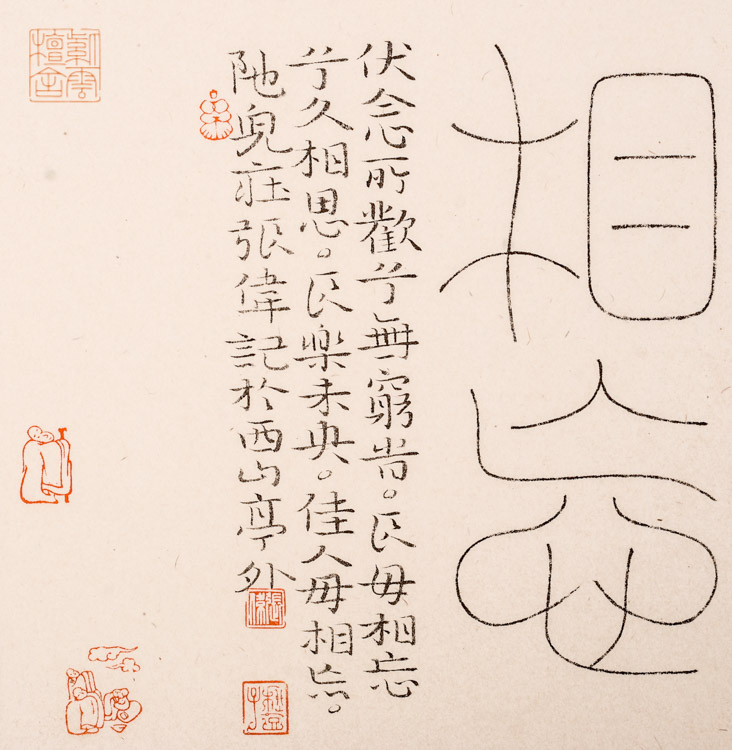 相忘
伏念所歡兮無窮旹。長毋相忘
兮久相思。長楽未央。佳人毋相忘。
阤兒庒張偉記於西山亭外
張偉